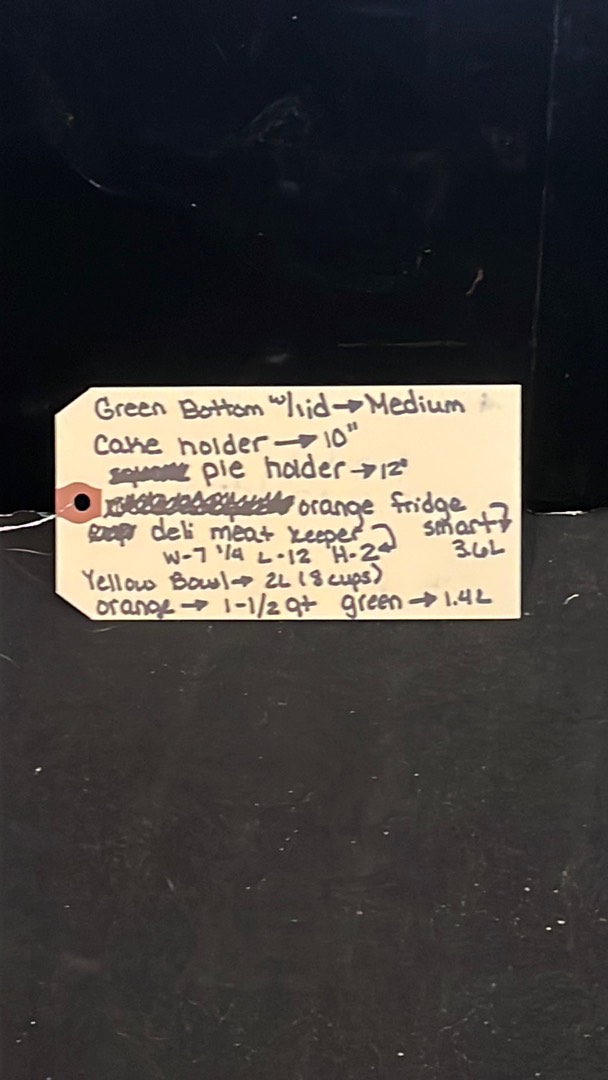 Green Bottom w/lid → Medium
Cake holder → 10"
pie holder → 12"
orange fridge smart → 3.6L
deli meat keeper
W-7 1/4 L-12 H-2
Yellow Bowl → 2L (8 cups)
orange → 1-1/2 qt green → 1.4L